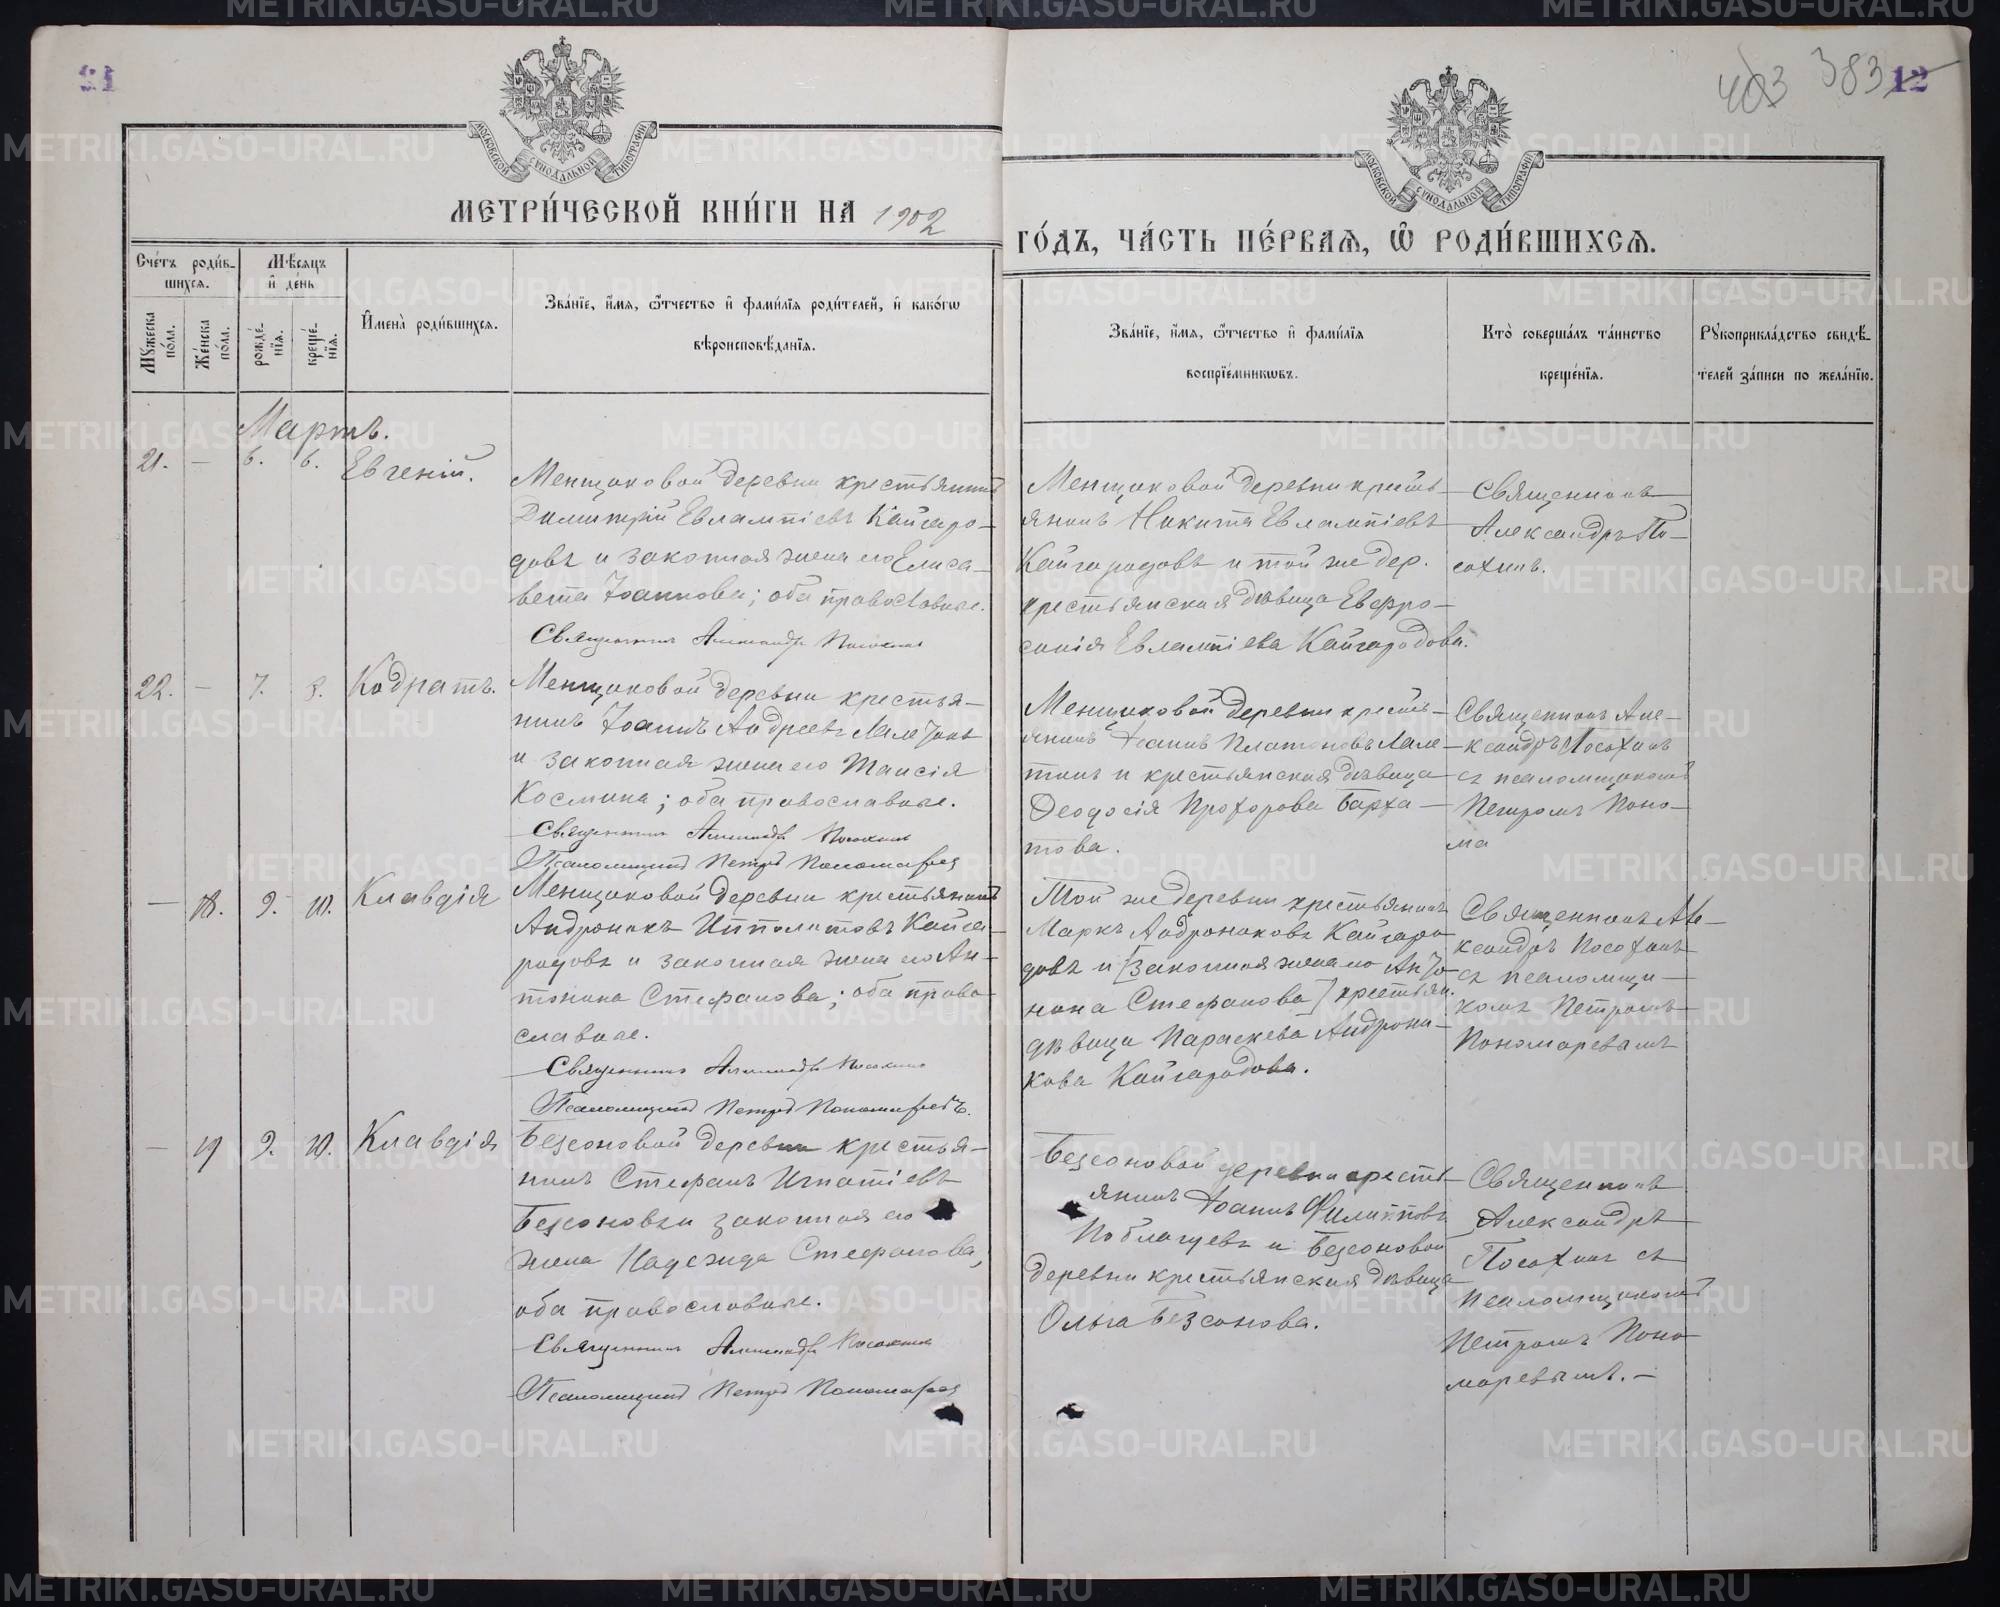 403 383 12
МОСКОВСКОЙ СѴНОДАЛЬНОЙ ТИПОГРАФІИ
МОСКОВСКОЙ СѴНОДАЛЬНОЙ ТИПОГРАФІИ
МЕТРИ́ЧЕСКОЙ КНИ́ГИ НА 1902
ГО́ДЪ, ЧА́СТЬ ПЕ́РВАѦ, Ѡ҆ РОДИ́ВШИХСѦ.
Сче́тъ роди́в-
шихсѧ.
Мꙋ́жеска по́ла.
Же́нска по́ла.
Мѣ́сѧцъ
и҆ де́нь
рожде́-
нїѧ.
креще́-
нїѧ.
И҆мена̀ роди́вшихсѧ.
Зва́нїе, и҆́мѧ, ѻ҆́тчество и҆ фами́лїѧ роди́телей, и҆ како́гѡ
вѣроисповѣ́данїѧ.
Зва́нїе, и҆́мѧ, ѻ҆́тчество и҆ фами́лїѧ
воспрїе́мникѡвъ.
Кто̀ соверша́лъ та́инство
креще́нїѧ.
Рꙋкоприкла́дство свидѣ́-
телей за́писи по жела́нїю.
Мартъ.
21. — 6. 6. Евгеній.
Менщиковой деревни крестьянинъ
Димитрій Евлампіевъ Кайгаро-
довъ и законная жена его Елиса-
вета Іоаннова; оба православные.
Священникъ Александръ Посохинъ
Менщиковой деревни кресть-
янинъ Никита Евлампіевъ
Кайгородовъ и той же дер.
крестьянская дѣвица Евфро-
синія Евлампіева Кайгородова.
Священникъ
Александръ По-
сохинъ.
22. — 7. 8. Кодратъ.
Менщиковой деревни крестья-
нинъ Іоаннъ Андреевъ Лалетинъ
и законная жена его Таисія
Космина; оба православные.
Священникъ Александръ Посохинъ
Псаломщикъ Петръ Пономаревъ
Менщиковой деревни кресть-
янинъ Іоаннъ Платоновъ Лале-
тинъ и крестьянская дѣвица
Ѳеодосія Прохорова Барха-
това.
Священникъ Але-
ксандръ Посохинъ
съ псаломщикомъ
Петромъ Поно-
ма
— 18. 9. 10. Клавдія
Менщиковой деревни крестьянинъ
Андроникъ Ипполитовъ Кайга-
родовъ и законная жена его Ан-
тонина Стефанова; оба право-
славные.
Священникъ Александръ Посохинъ
Псаломщикъ Петръ Пономаревъ.
Той же деревни крестьянинъ
Маркъ Андрониковъ Кайгаро
довъ и [законная жена его Анто-
нина Стефанова] крестьян.
дѣвица Параскева Андрони-
кова Кайгородова.
Священникъ Але-
ксандръ Посохинъ
съ псаломщи-
комъ Петромъ
Пономаревымъ
— 19 9. 10. Клавдія
Безсоновой деревни крестья-
нинъ Стефанъ Игнатіевъ
Безсоновъ и законная его
жена Надежда Стефанова,
оба православные.
Священникъ Александръ Посохинъ
Псаломщикъ Петръ Пономаревъ
Безсоновой деревни кресть-
янинъ Іоаннъ Филипповъ
и Безсоновой
деревни крестьянская дѣвица
Ольга Безсонова.
Священникъ
Александръ
Посохинъ съ
псаломщикомъ
Петромъ Поно-
маревымъ. —